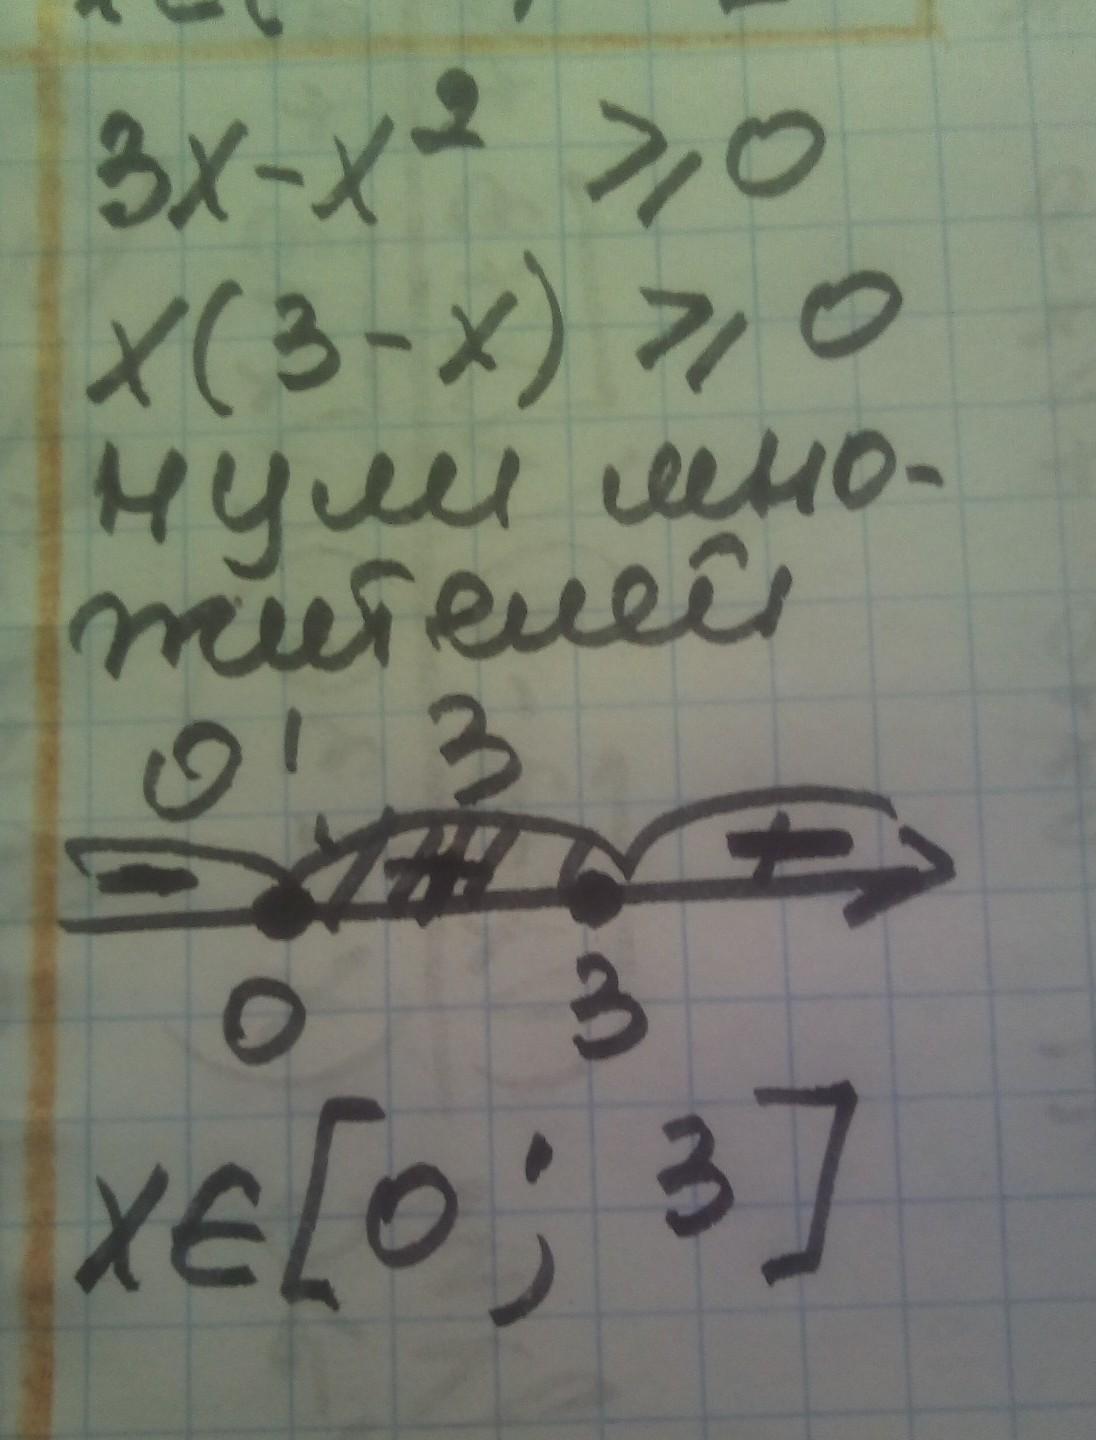 3x-x² ≥ 0
x(3-x) ≥ 0
нули мно-
жителей
0; 3
- + +
0 3
x∈[0; 3]